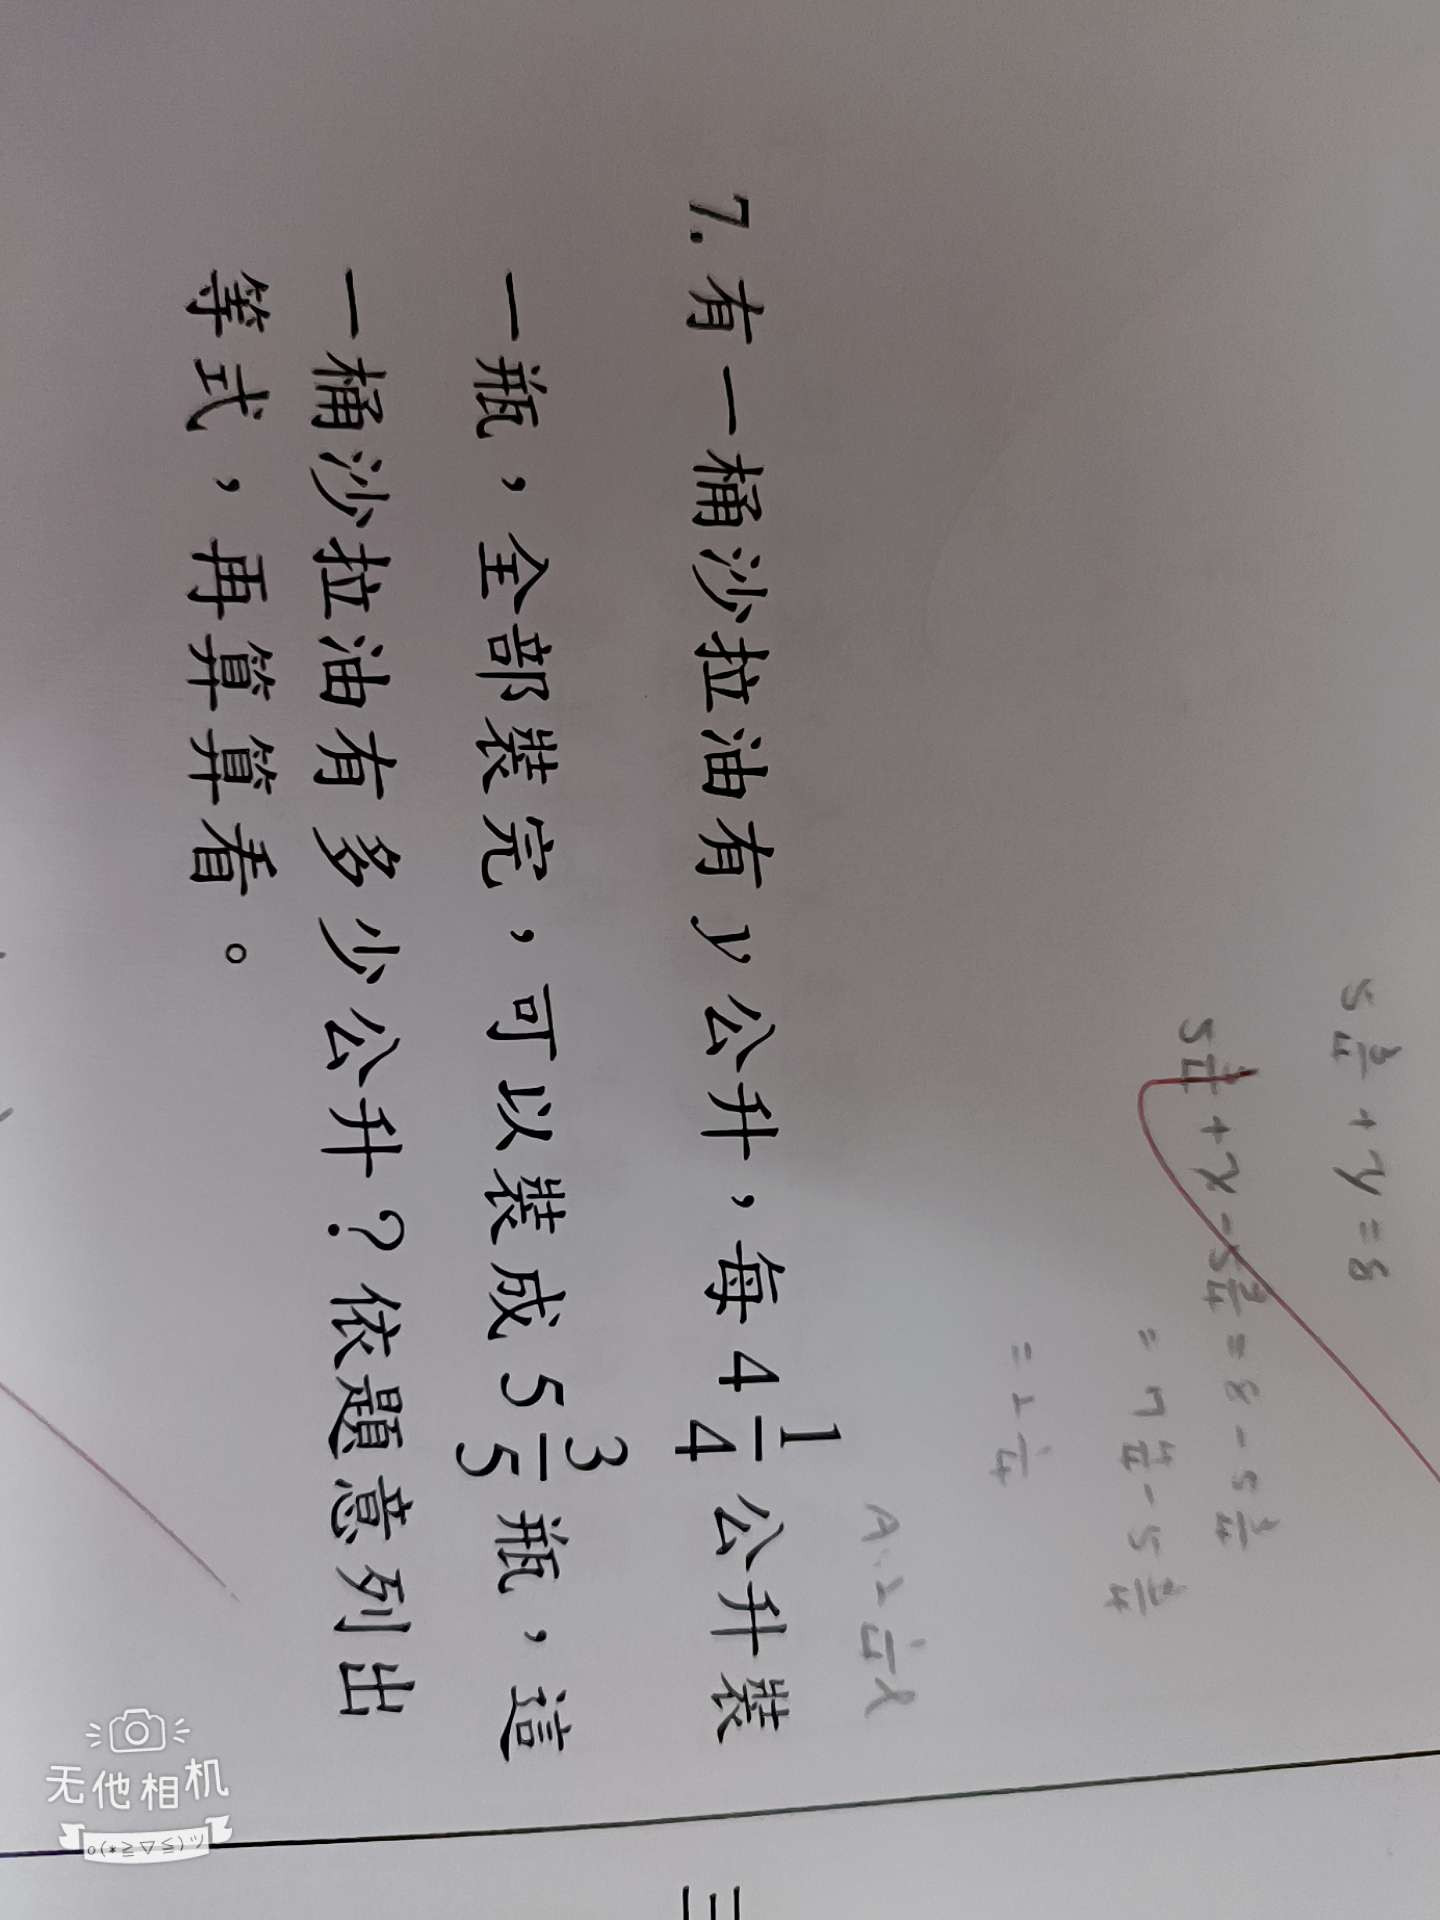 5 3/4 + y = 8
5 3/4 + y - 5 3/4 = 8 - 5 3/4
= 7 4/4 - 5 3/4
= 2 1/4
A: 2 1/4 l
7. 有一桶沙拉油有 y 公升，每 4 1/4 公升裝
一瓶，全部裝完，可以裝成 5 3/5 瓶，這
一桶沙拉油有多少公升？依題意列出
等式，再算算看。
三
无他相机
o(*≧▽≦)ツ